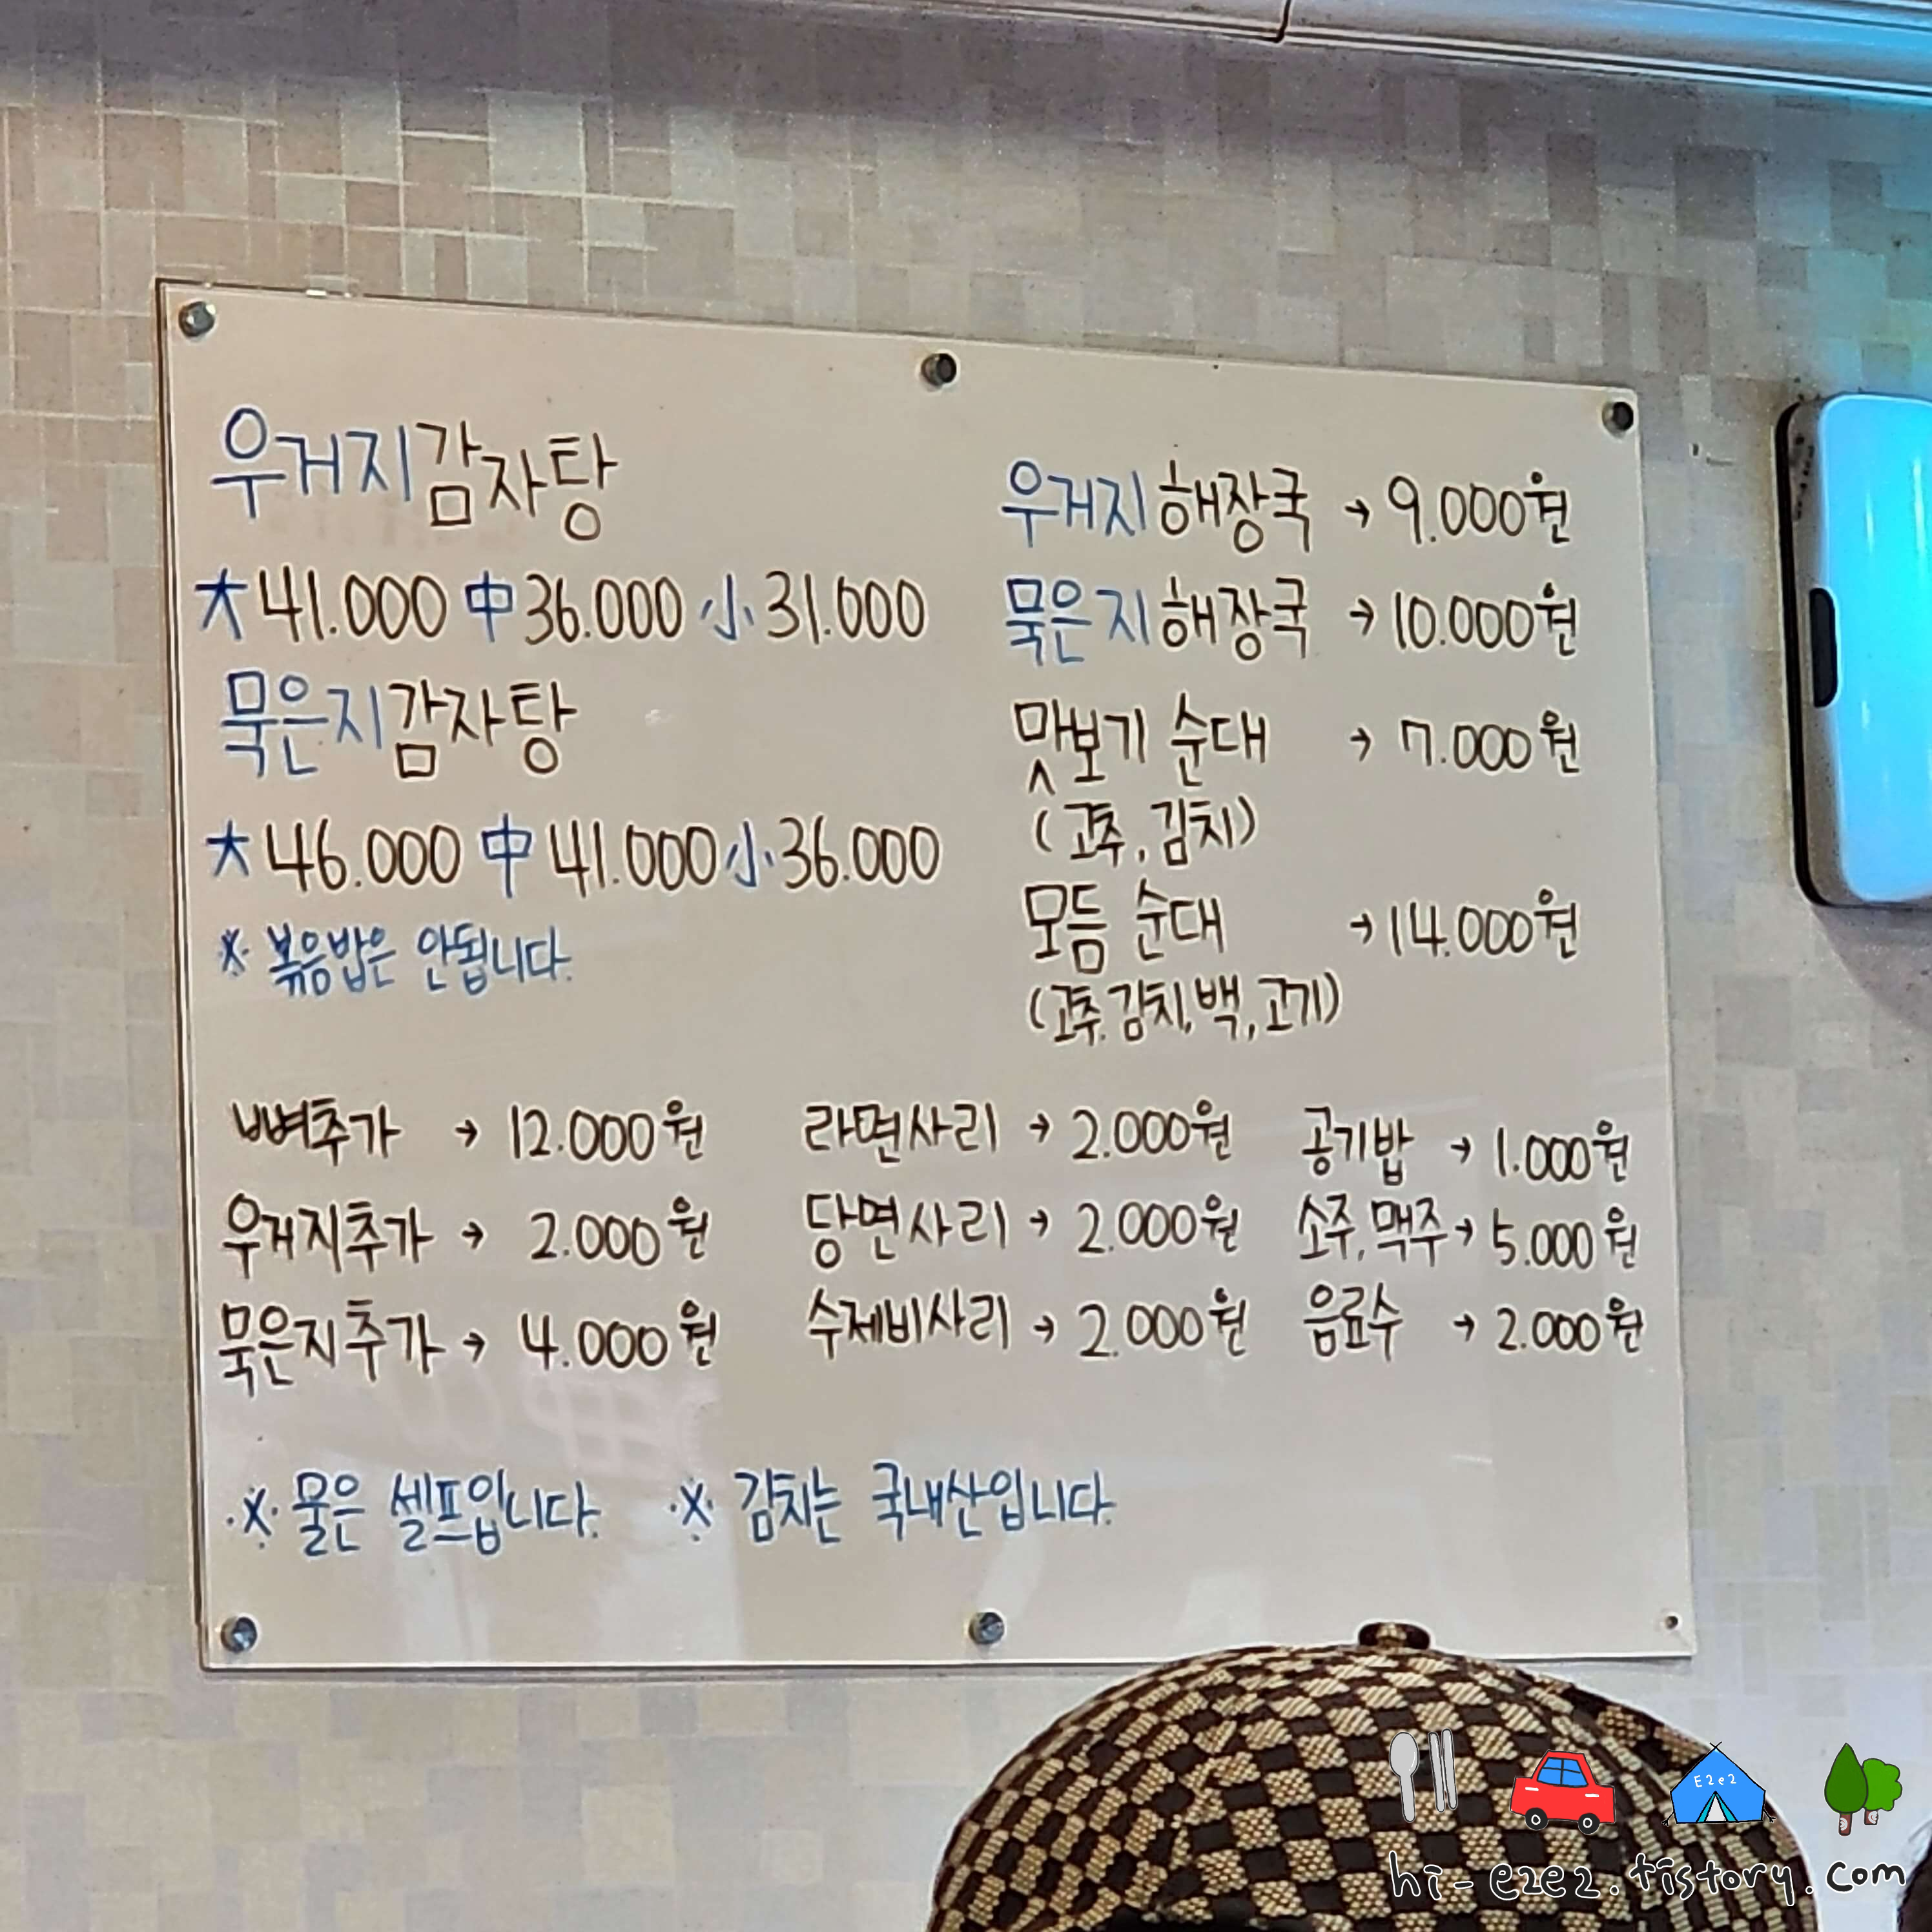 우거지감자탕
大 41.000 中 36.000 小 31.000
묵은지감자탕
大 46.000 中 41.000 小 36.000
※ 볶음밥은 안됩니다.
우거지 해장국 → 9.000원
묵은지 해장국 → 10.000원
맛보기 순대 → 7.000원
(고추, 김치)
모듬 순대 → 14.000원
(고추. 김치, 백, 고기)
뼈추가 → 12.000원
우거지추가 → 2.000원
묵은지추가 → 4.000원
라면사리 → 2.000원
당면사리 → 2.000원
수제비사리 → 2.000원
공기밥 → 1.000원
소주, 맥주 → 5.000원
음료수 → 2.000원
※ 물은 셀프입니다. ※ 김치는 국내산입니다.
E2e2
hi-e2e2.tistory.com